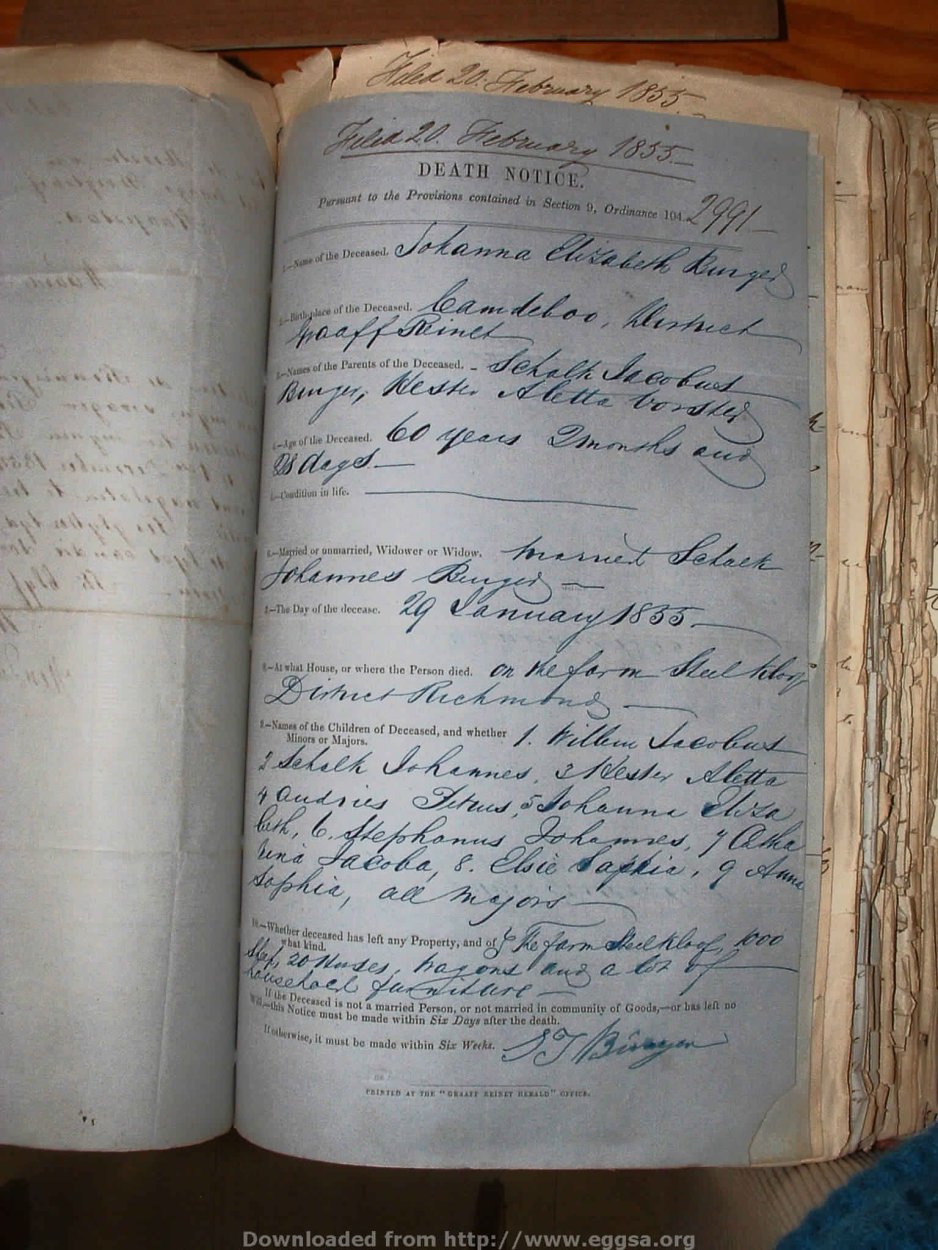 Filed 20. February 1855
Filed 20. February 1855
DEATH NOTICE.
Pursuant to the Provisions contained in Section 9, Ordinance 104. 2991
1.—Name of the Deceased. Johanna Elizabeth Burger
2.—Birth-place of the Deceased. Camdeboo, District
Graaff Reinet
3.—Names of the Parents of the Deceased. - Schalk Jacobus
Burger, Hester Aletta Vorster
4.—Age of the Deceased. 60 years 2 months and
28 days
5.—Condition in life.
6.—Married or unmarried, Widower or Widow. married Schalk
Johannes Burger
7.—The Day of the decease. 29 January 1855.
8.—At what House, or where the Person died. on the farm Steel kloof
District Richmond
9.—Names of the Children of Deceased, and whether 1. Willem Jacobus
Minors or Majors.
2 Schalk Johannes, 3 Hester Aletta
4 Andries Petrus, 5 Johanna Eliza
beth, 6. Stephanus Johannes, 7 Catha
rina Jacoba, 8. Elsie Saphia, 9 Anna
Sophia, all majors
10.—Whether deceased has left any Property, and of The farm Steelkloof, 1000
what kind.
Sheep, 20 Horses, Wagons and a lot of
household furniture
If the Deceased is not a married Person, or not married in community of Goods,—or has left no
Will,—this Notice must be made within Six Days after the death.
If otherwise, it must be made within Six Weeks. S J Burger
PRINTED AT THE "GRAAFF REINET HERALD" OFFICE.
Downloaded from http://www.eggsa.org